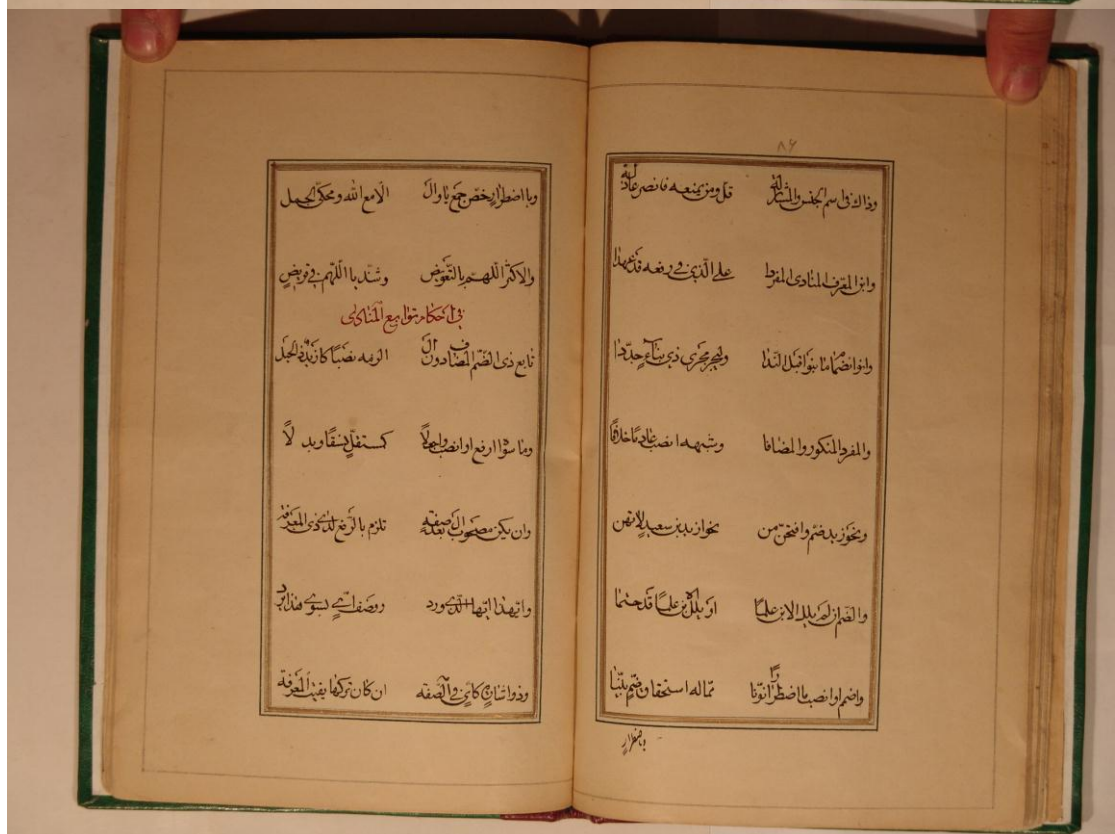 ٨٦
وذاك في اسم الجنس والمشار له قل ومن يمنعه فانصر عاذله
وابن المعرف المنادى المفردا على الذي في رفعه قد عهدا
وانو انضمام ما بنوا قبل الندا وليجر مجرى ذي بناء جددا
والمفرد المنكور والمضافا وشبهه انصب عادما خلافا
ونحو زيد ضم وافتحن من نحو ازيد بن سعيد لا تهن
والضم ان لم يل الابن علما او يل الابن علما قد حتما
واضمم او انصب ما اضطرارا نونا مما له استحقاق ضم بينا
باضطرار
وباضطرار خص جمع يا وال الا مع الله ومحكي الجمل
والاكثر اللهم بالتعويض وشذ يا اللهم في قريض
في احكام توابع المنادى
تابع ذي الضم المضاف دون ال الزمه نصبا كازيد ذا الحيل
وما سواه ارفع او انصب واجعلا كمستقل نسقا وبدلا
وان يكن مصحوب ال بعد صفه تلزم بالرفع لدى ذي المعرفه
وايهذا ايها الذي ورد ووصف اي بسوى هذا يرد
وذو اشارة كاي في الصفه ان كان تركها يفيت المعرفة